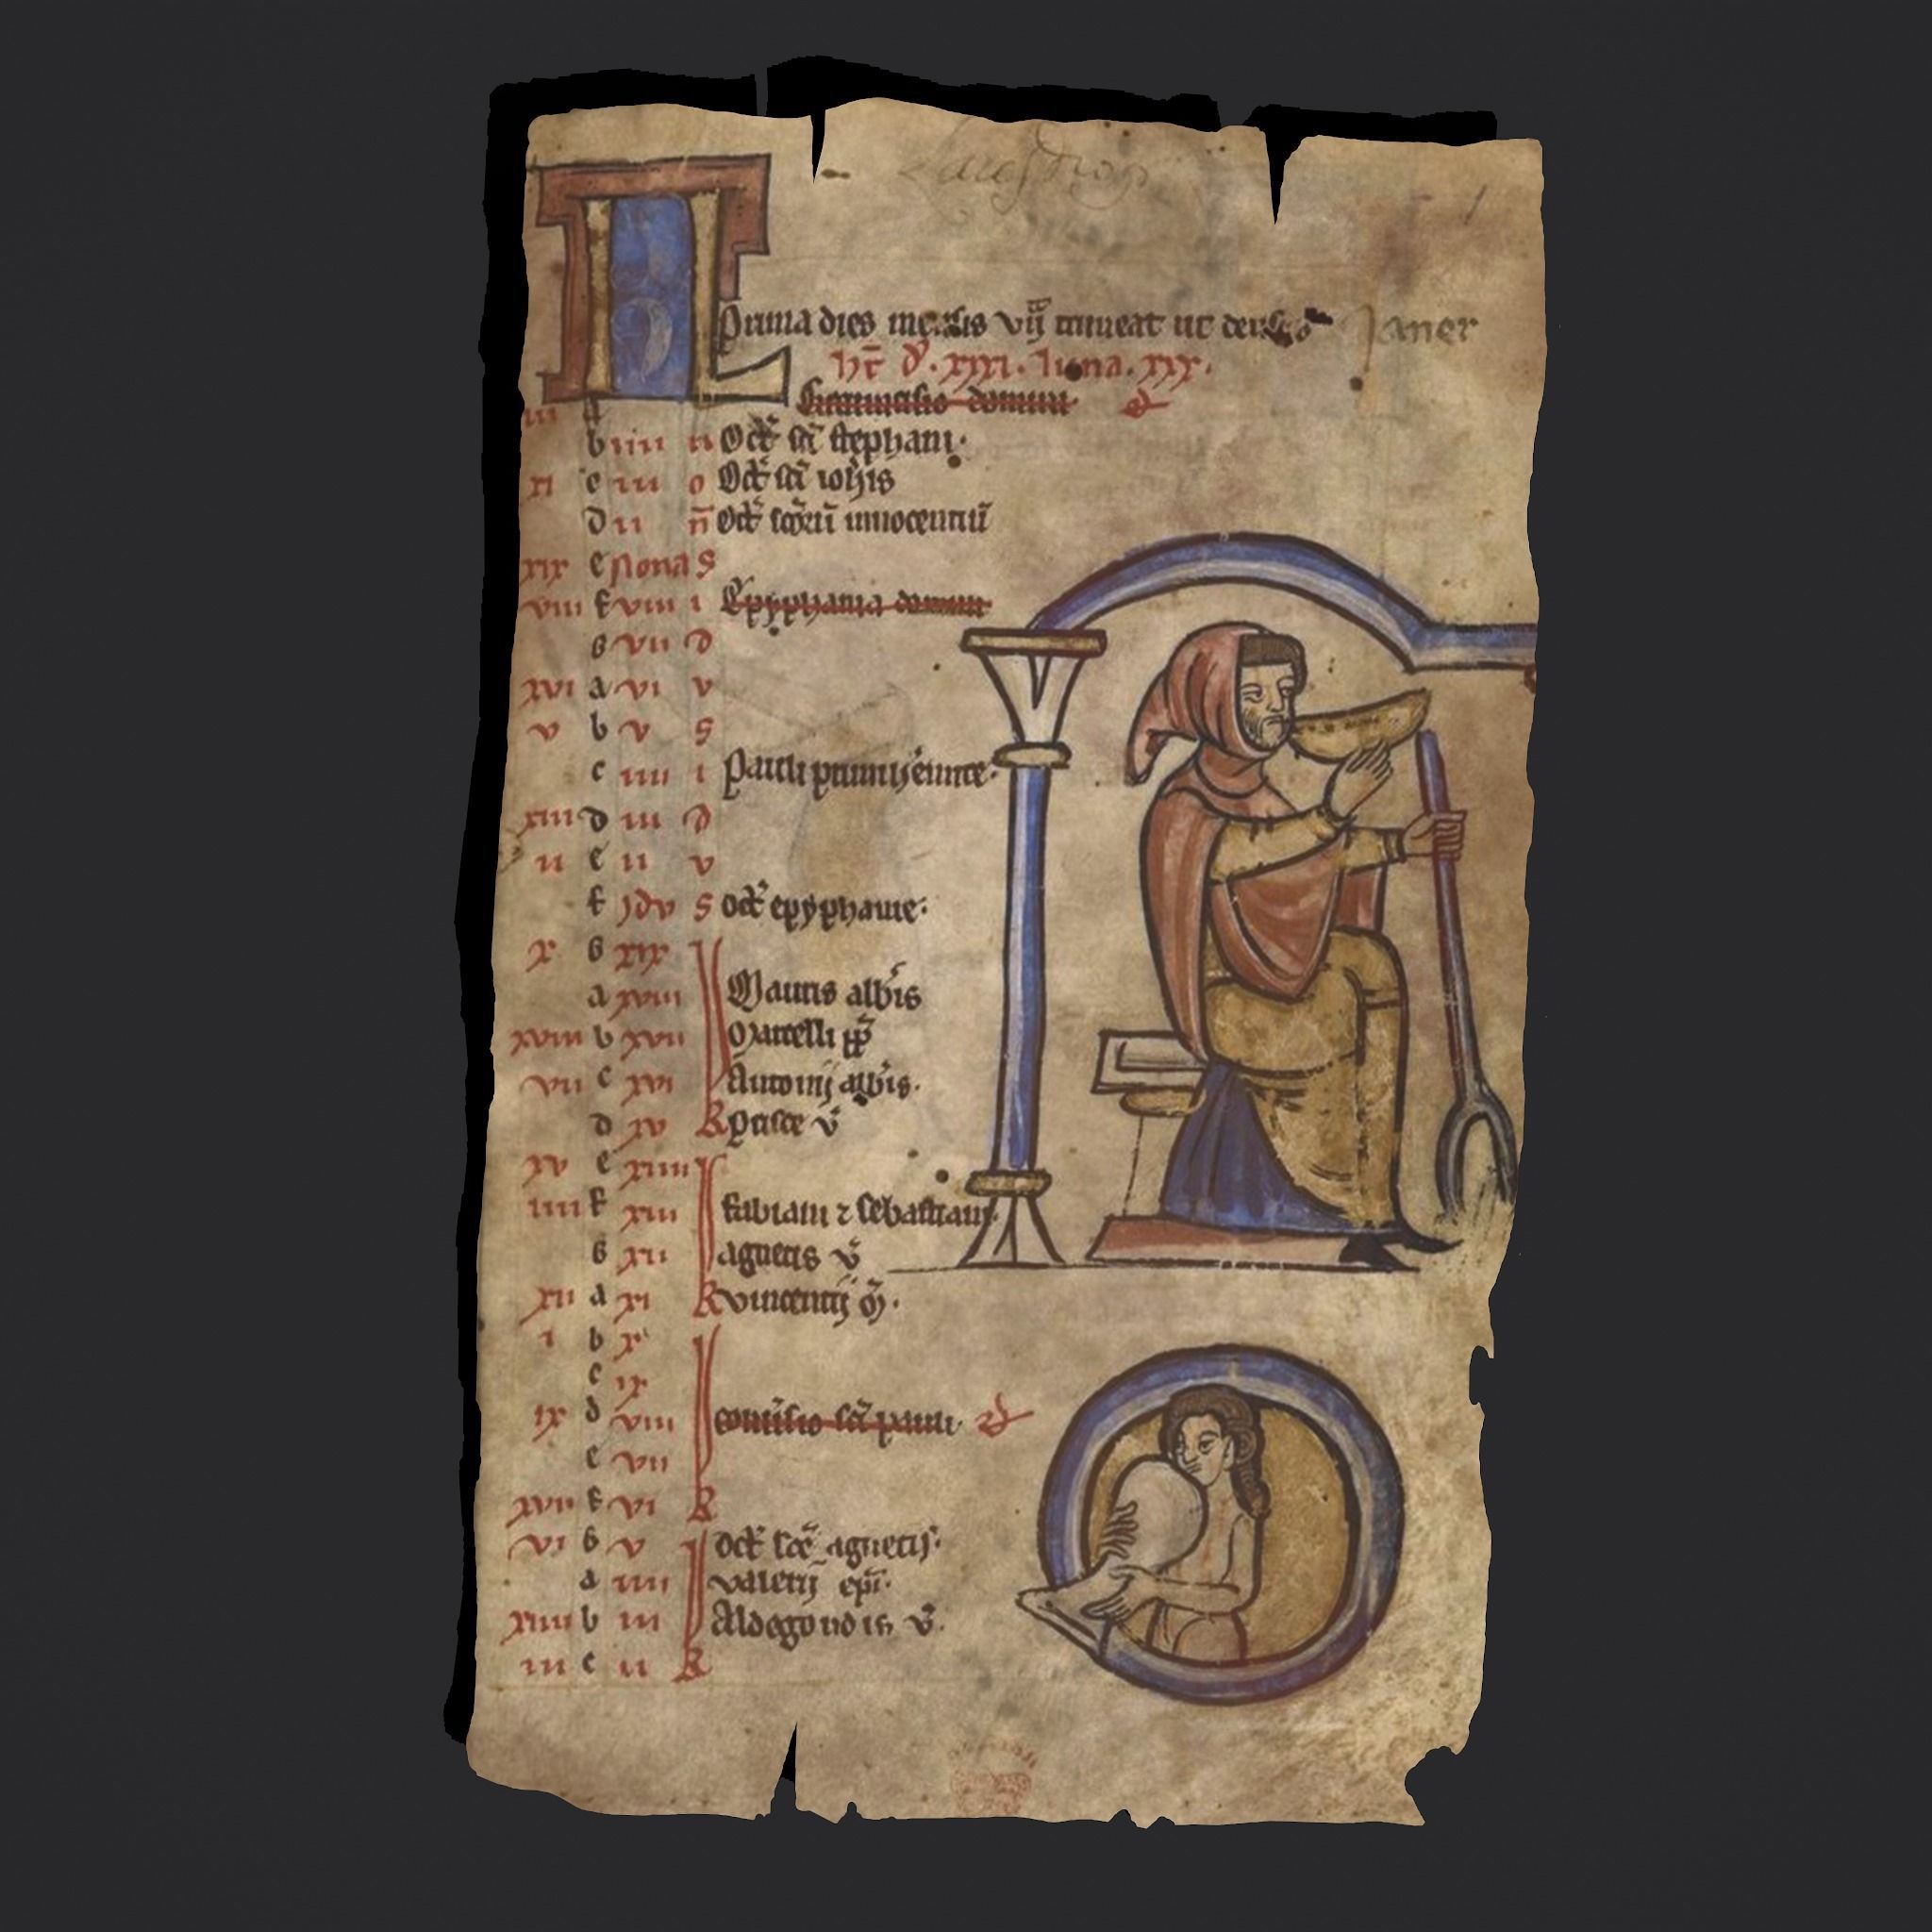 KL
Prima dies mensis vij timeat ut
Janer
1
hꝛ d. xxxi. luna. xxx.
Circumcisio domini
iii a
b iiii n Oct̄ sc̄i stephani.
xi c iii o Oct̄ sc̄i ioh̄is
d ii n̄ Oct̄ sc̄oꝛū innocentiū
xix e Nona s
viii f viii i Epyphania domini
g vii d
xvi a vi v
v b v s
c iiii i Pauli primi
xiii d iii d
ii e ii v
f Jdv s oct̄ epyphanie.
x g xix
a xviii Mauris alb̄is
xviii b xvii Marcelli pp̄
vii c xvi Antonij alb̄is.
d xv K prisce v̄
xv e xiiii
iiii f xiii fabiani ⁊ sebastiani.
g xii agnetis v̄
xii a xi K vincentij m̄.
i b x
c ix
ix d viii conuersio sc̄i pauli.
e vii
xvii f vi K
vi g v oct̄ sc̄e agnetis.
a iiii valerij ep̄i.
xiiii b iii Aldegondis v̄.
iii c ii K